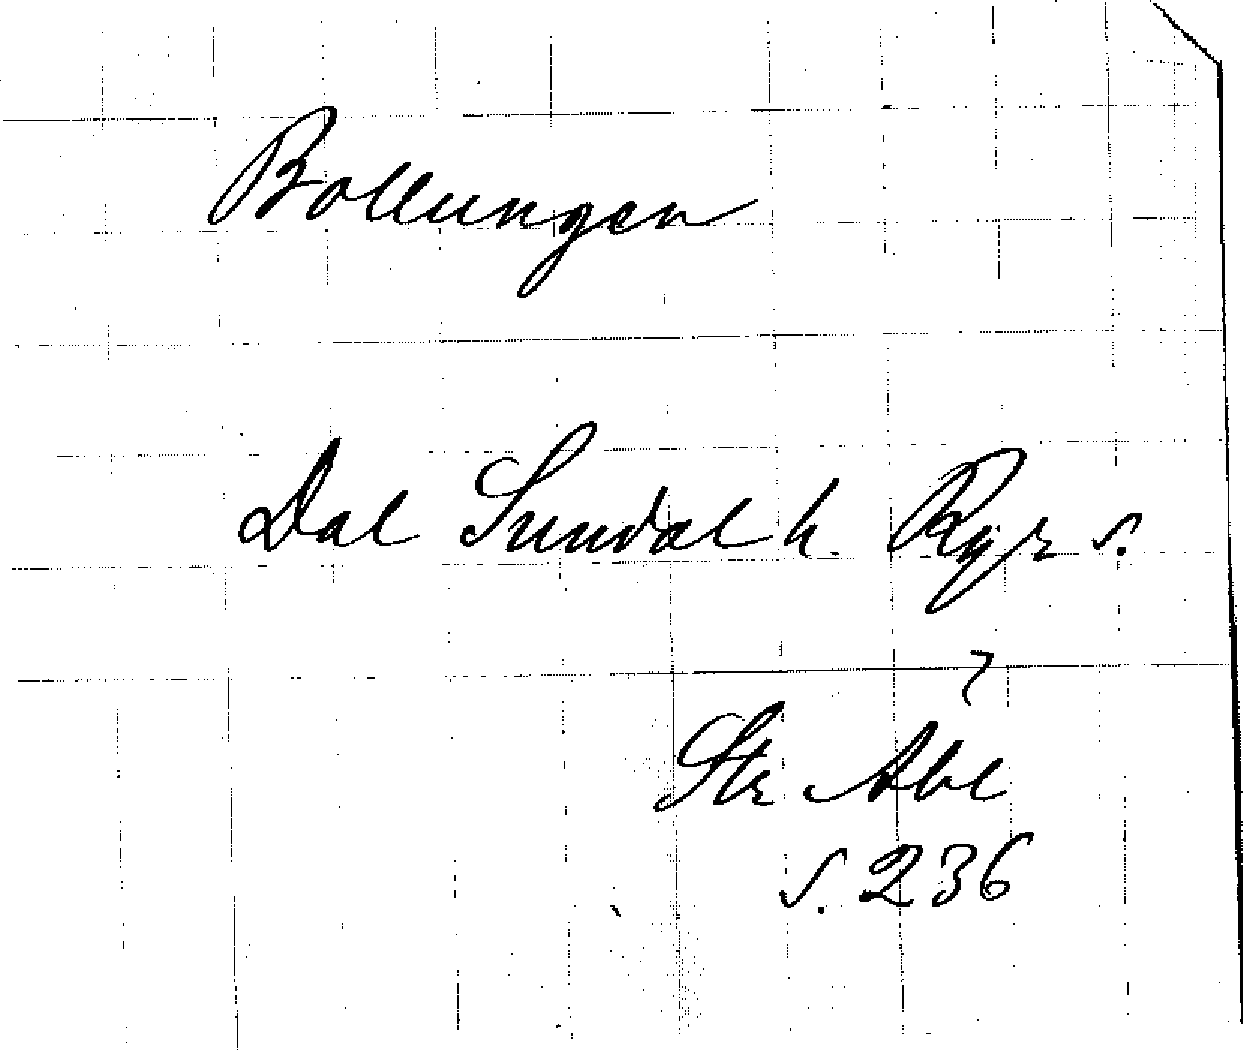 Bollungen
Dal Sundal h. Ryr s.
Str Abl
s. 236